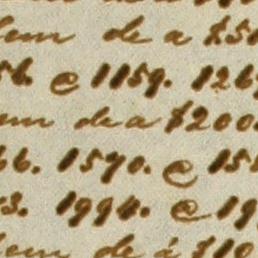 dem de a $50
56. e 1159. 126
em de a $200
66. 1570. e 15
3. 1994. e 19
dem de á $10